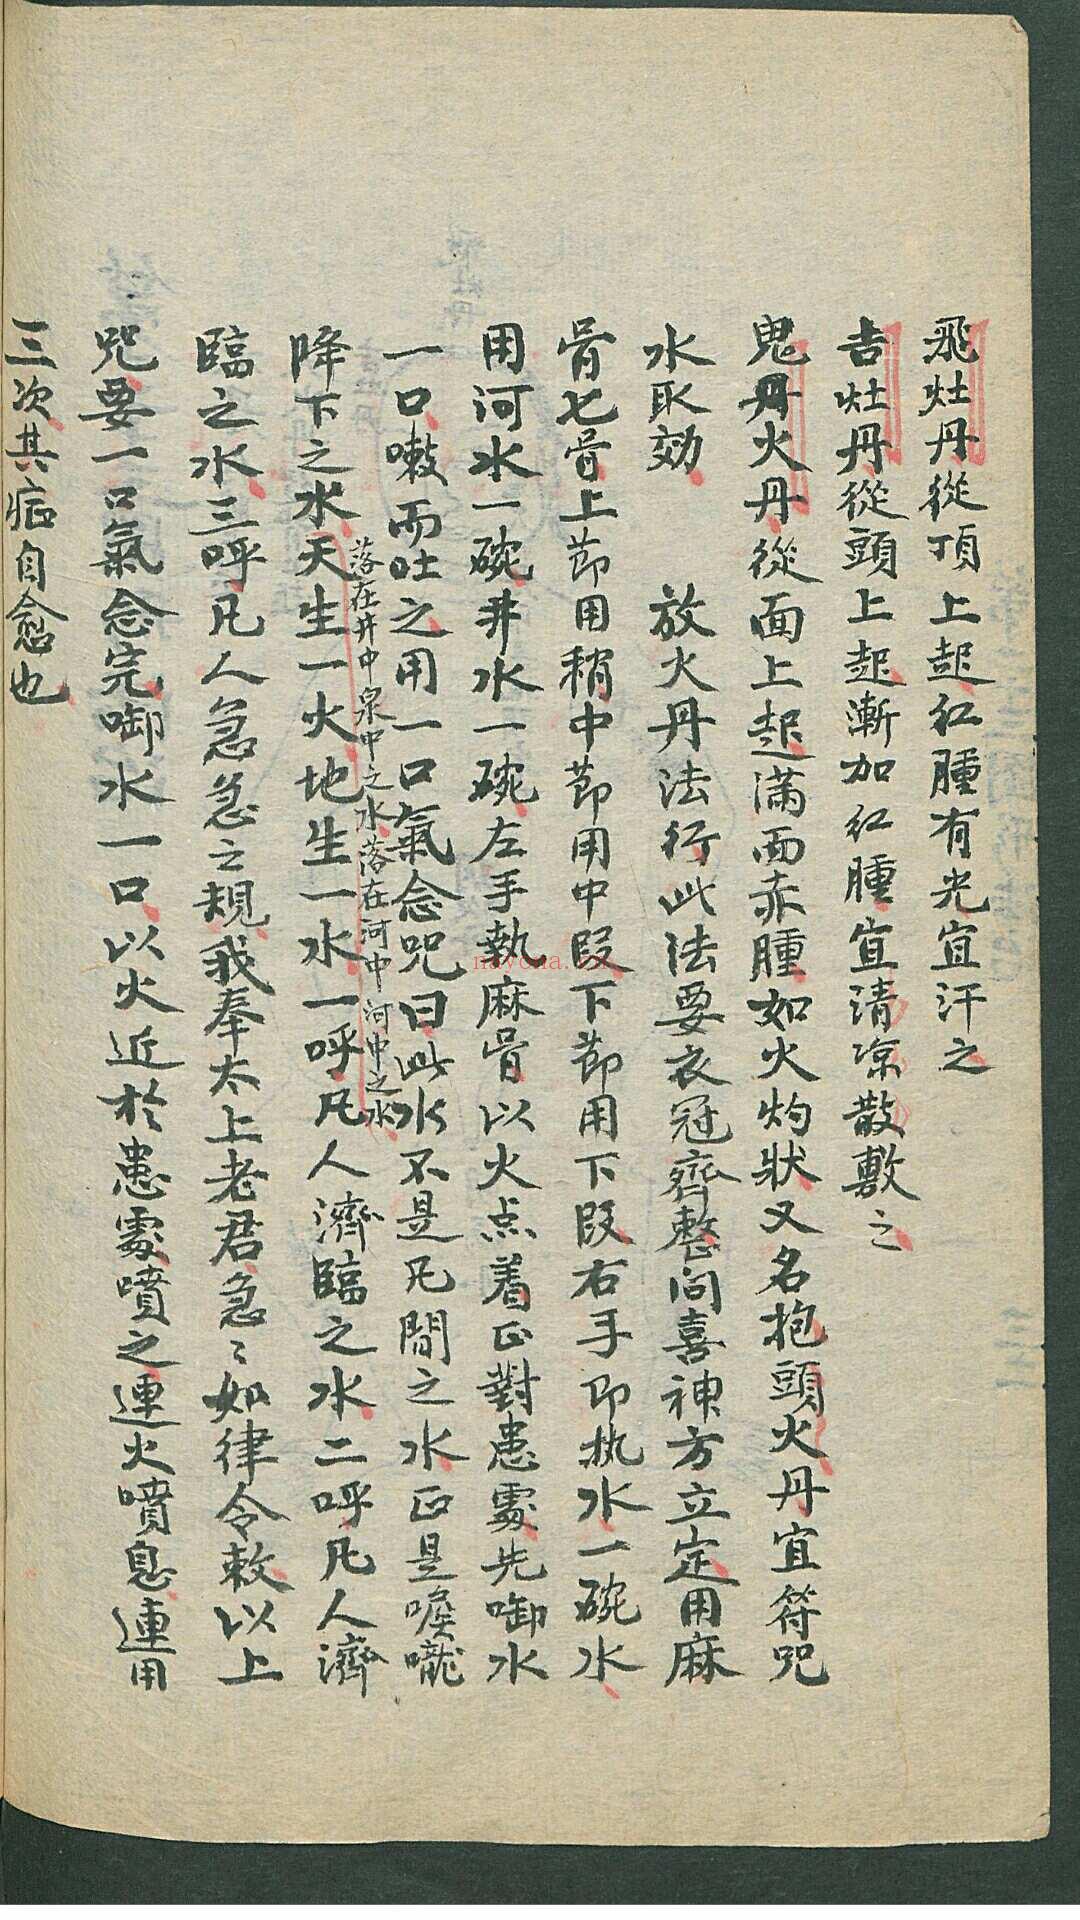 飛灶丹從頂上起紅腫有光宜汗之
吉灶丹從頭上起漸加紅腫宜清凉散敷之
鬼丹火丹從面上起滿面赤腫如火灼狀又名抱頭火丹宜符咒
水取効　放火丹法行此法要衣冠齊整向喜神方立定用麻
骨七骨上節用稍中節用中段下節用下段右手卬执水一碗水
用河水一碗井水一碗左手執麻骨以火点着正對患處先啣水
一口嗽而吐之用一口氣念咒曰此水不是凡間之水正是喉嚨
降下之水天生一火地生一水一呼凡人濟臨之水二呼凡人濟
落在井中泉中之水落在河中河中之水
臨之水三呼凡人急急之規我奉太上老君急〻如律令敕以上
咒要一口氣念完啣水一口以火近於患處噴之連火噴息連用
三次其症自愈也
nayona.cn